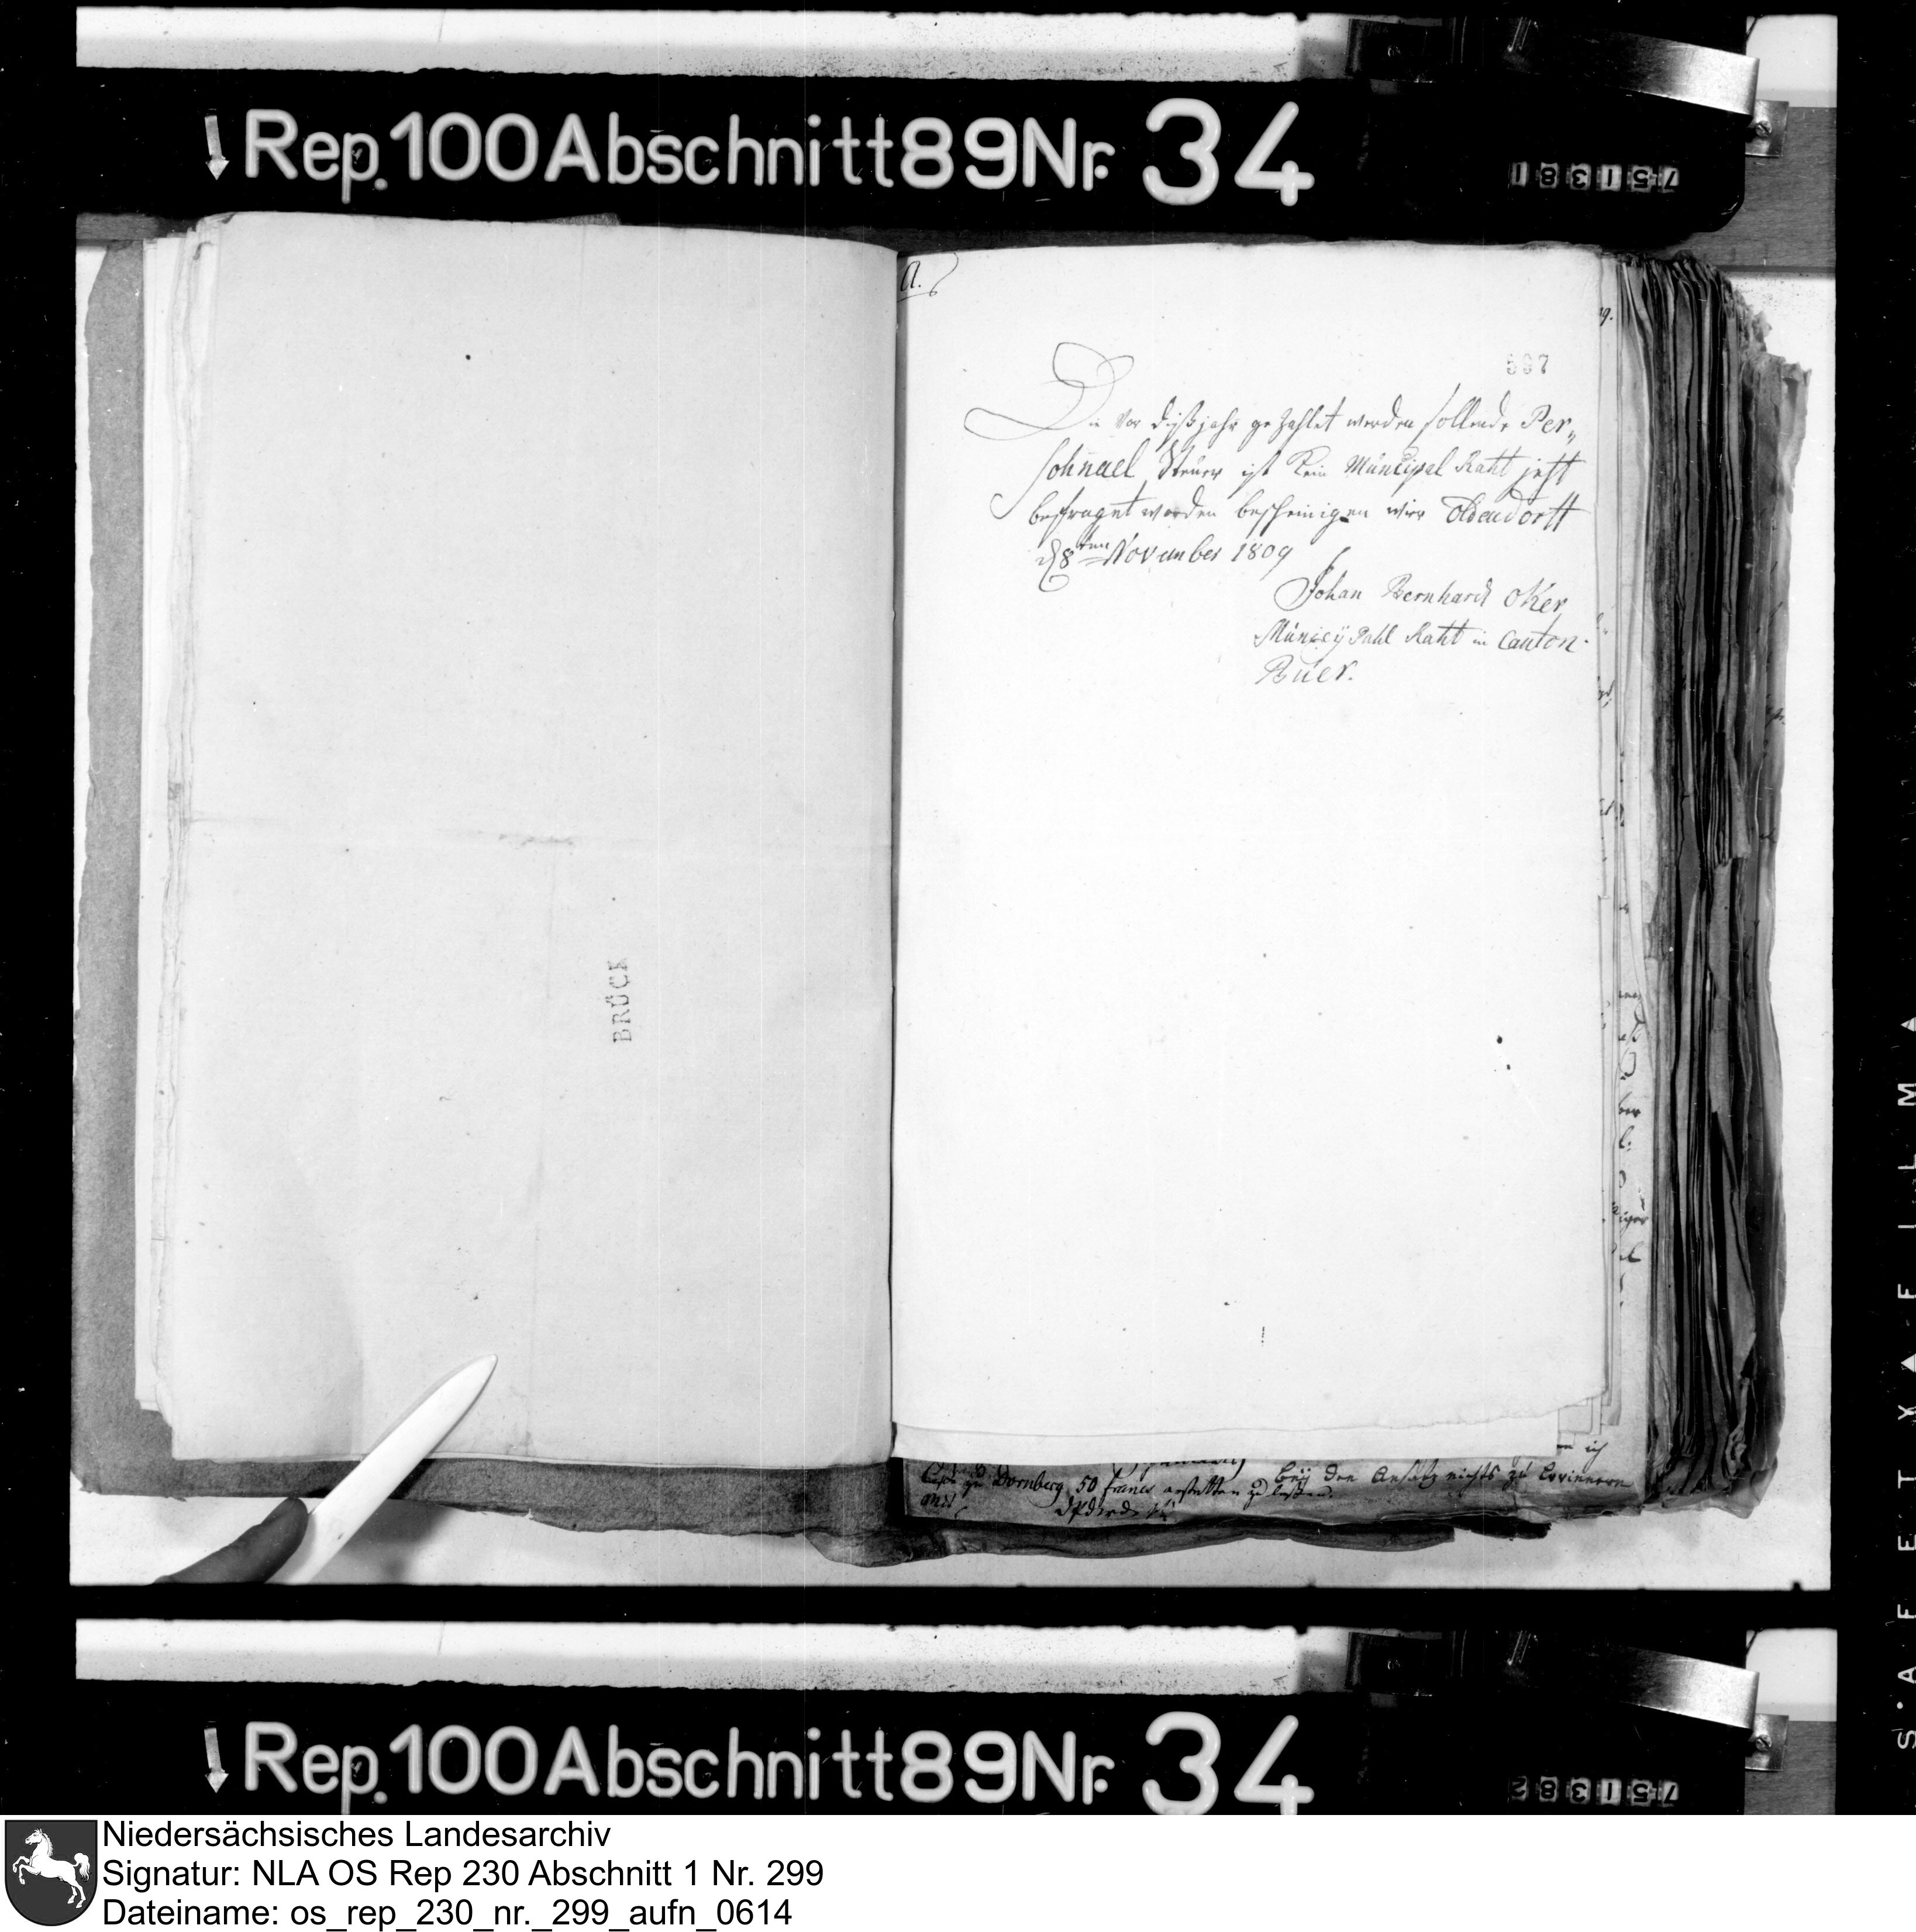 Rep. 100 Abschnitt 89 Nr. 34
7513381
BRÜCK
A.
597
Die vor dißjahr gezahlet werden sollende Per„
sohnael Steuer ist kein Müncipal Raht jest
befraget worden bescheinigen wir Oldendorff
d 8ten November 1809
Johan Bernhard Oker
Münicÿpahl Raht in Canton
Buer.
ich
zu Dornberg 50 francs erstatten zu laßen.
beÿ den Ansatz nichts zu Erinnern
SAFETY FILM
Rep. 100 Abschnitt 89 Nr. 34
7513382
Niedersächsisches Landesarchiv
Signatur: NLA OS Rep 230 Abschnitt 1 Nr. 299
Dateiname: os_rep_230_nr._299_aufn_0614